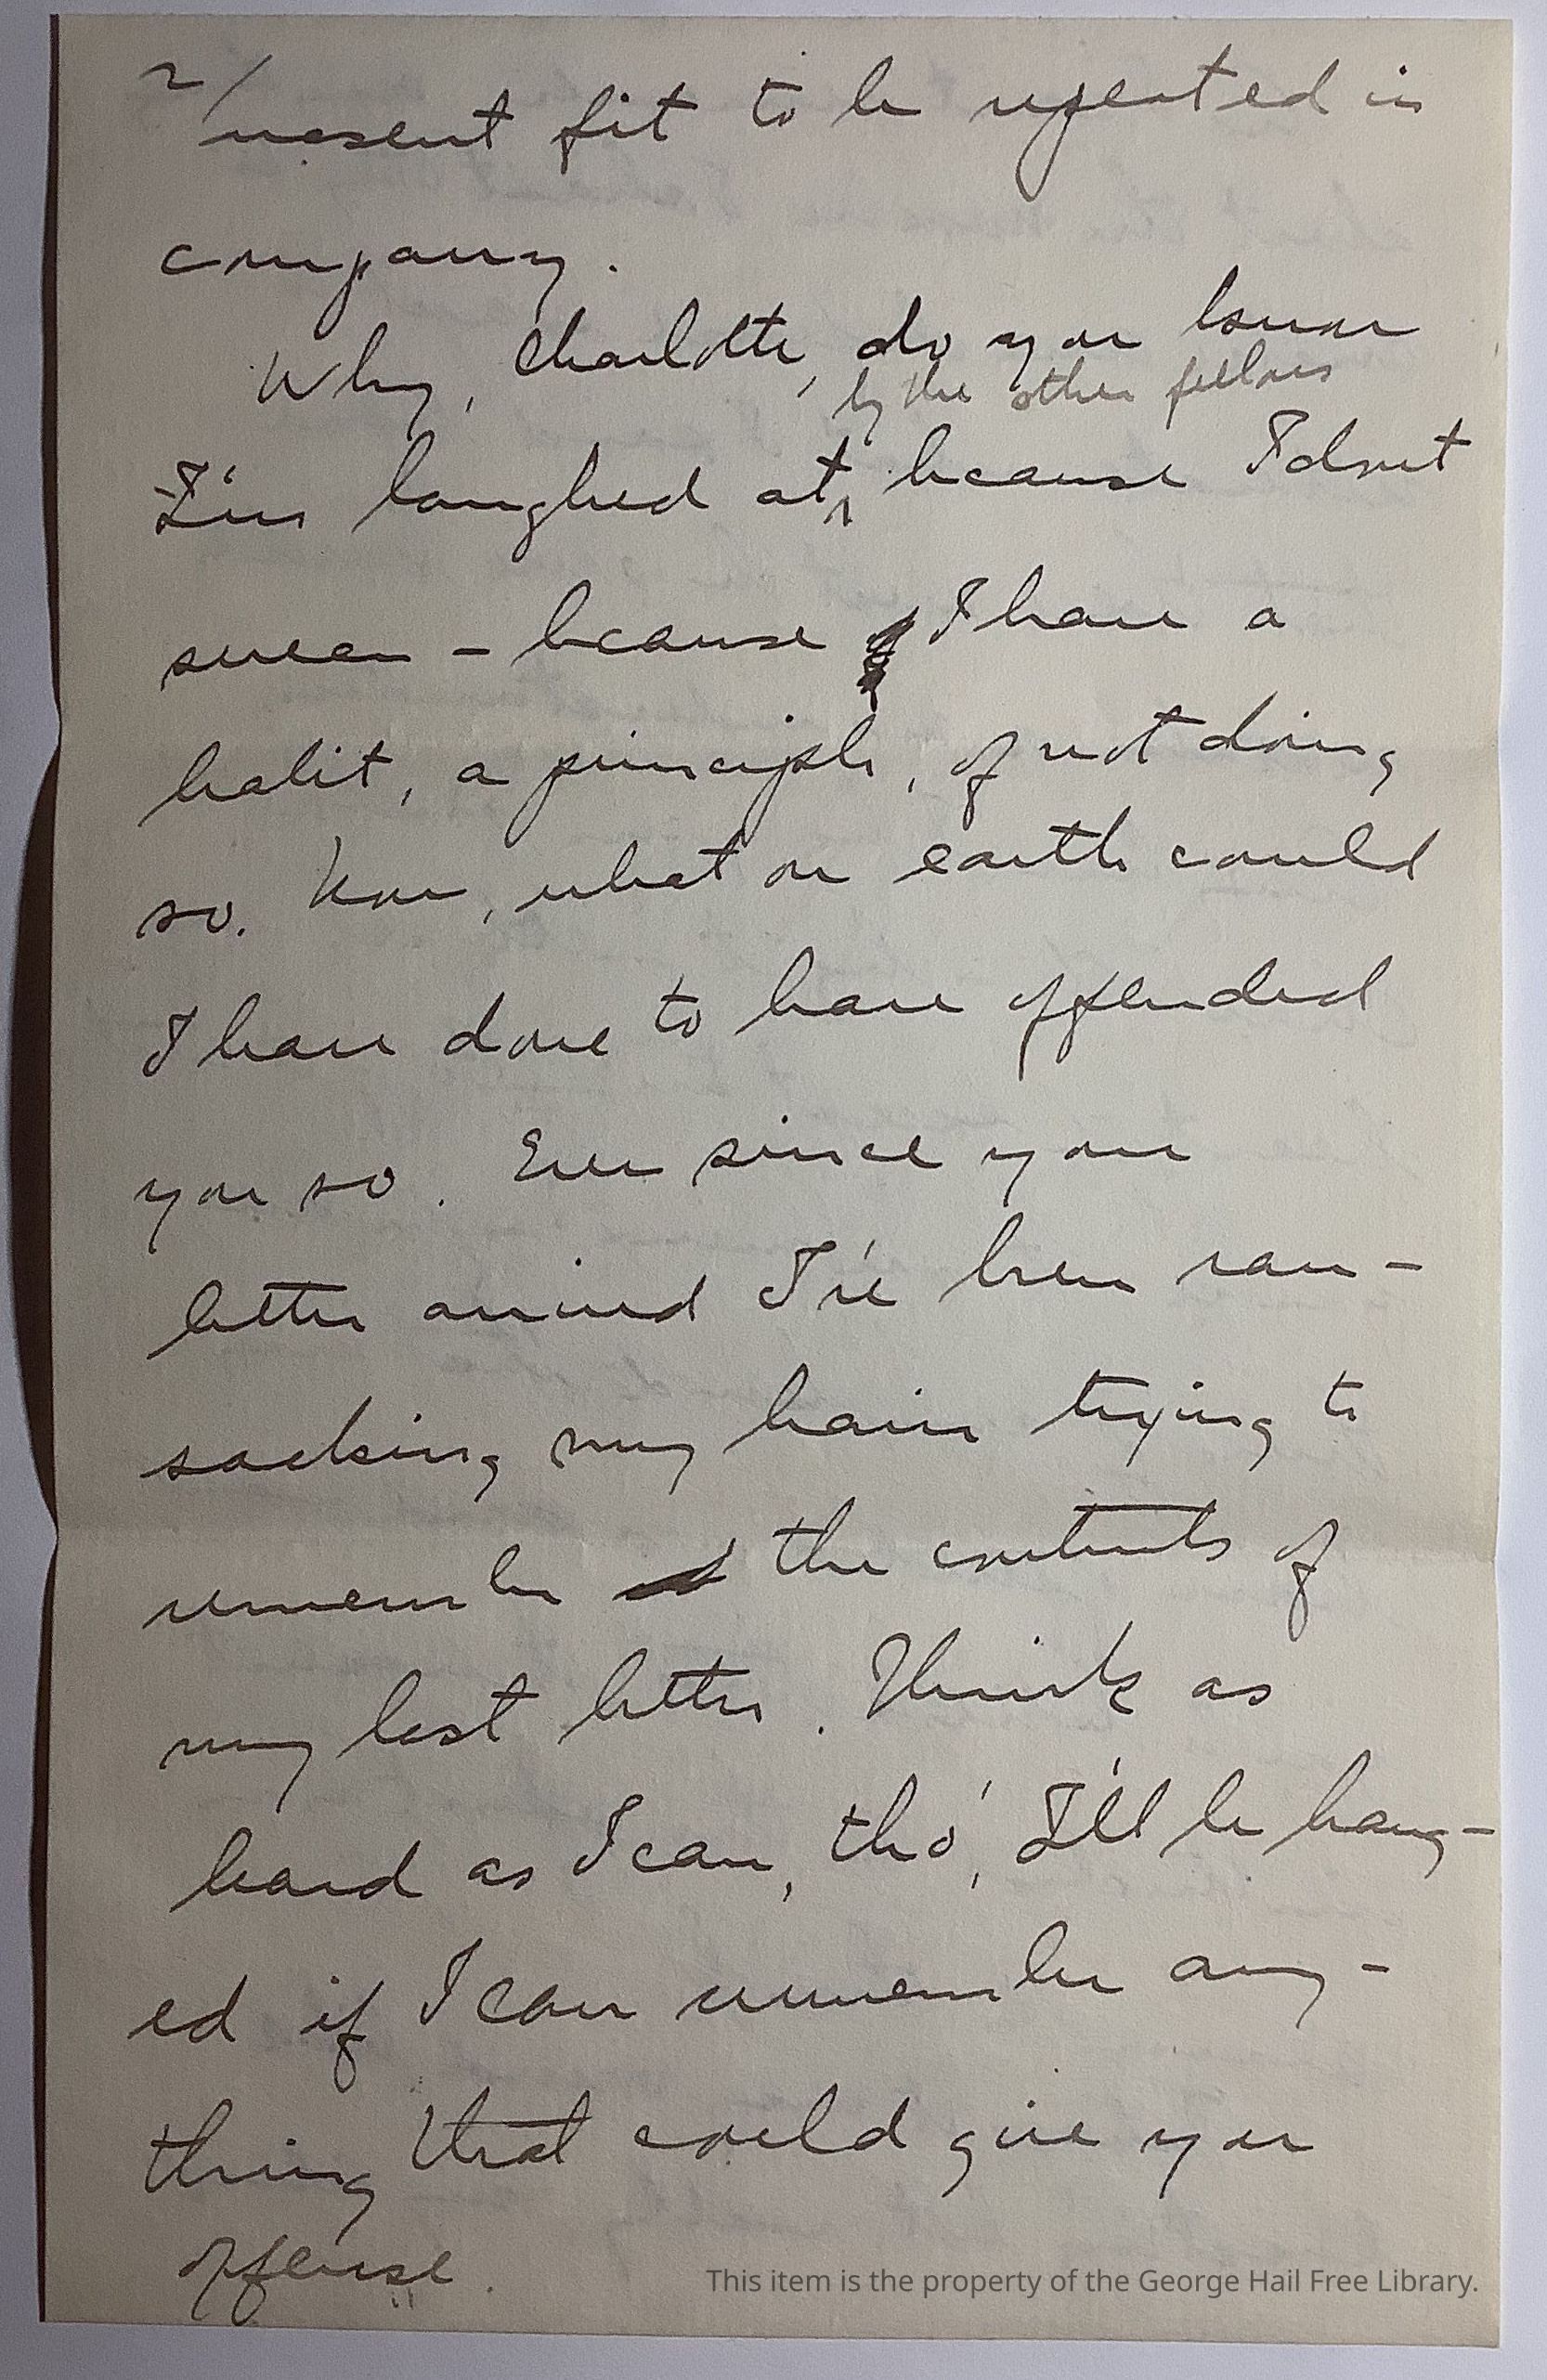 2/
wasent fit to be repeated in
company.
Why, Charlotte, do you know
by the other fellows
I'm laughed at, because I don't
swear – because I have a
habit, a principle, of not doing
so. Now, what on earth could
I have done to have offended
you so. Ever since your
letter arrived I've been ran-
sacking my brain trying to
remember the contents of
my last letter. Think as
hard as I can, tho', I'll be hang-
ed if I can remember any-
thing that could give you
offense.
This item is the property of the George Hail Free Library.